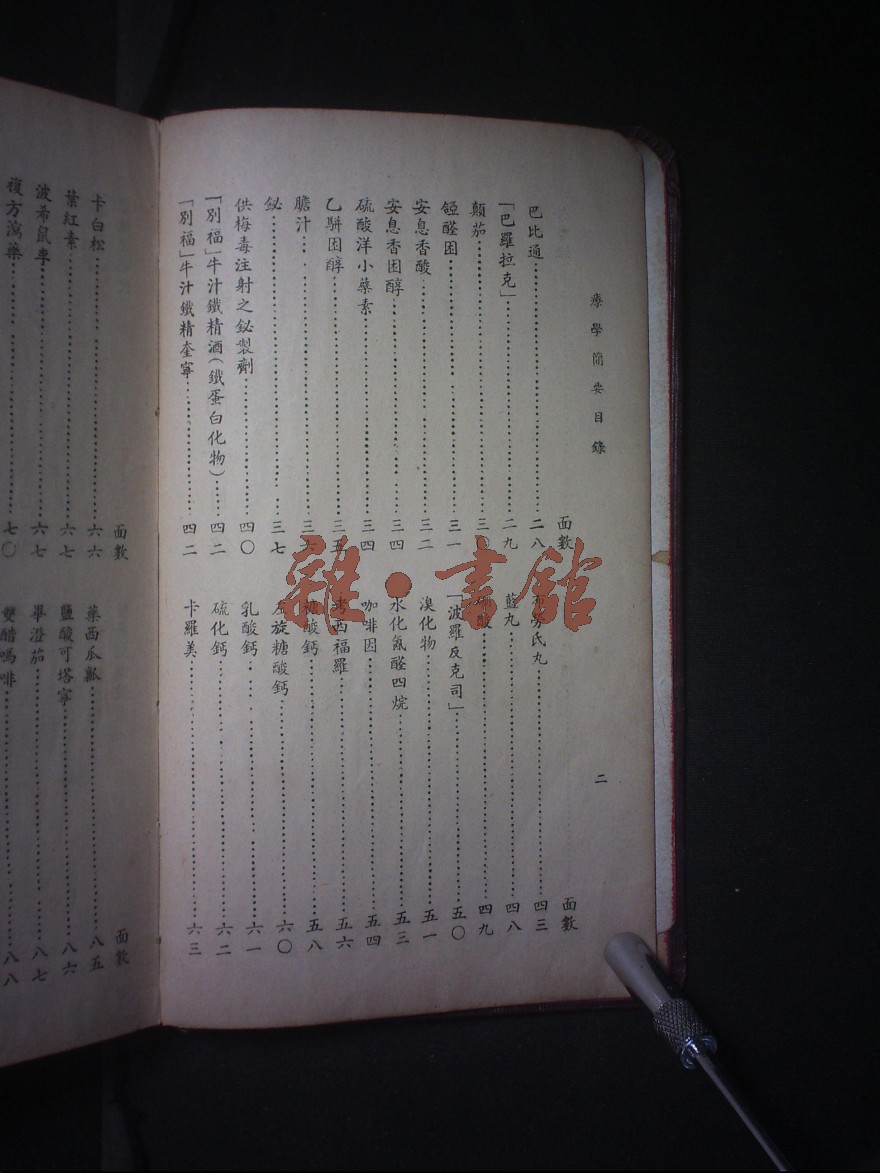 療學簡要目錄
二
面數
巴比通 二八
「巴羅拉克」 二九
顛茄 三〇
醛困 三一
安息香酸 三二
安息香困醇 三四
硫酸洋小蘗素 三四
乙困醇 三五
膽汁 三六
鉍 三七
供梅毒注射之鉍製劑 四〇
「別福」牛汁鐵精酒(鐵蛋白化物) 四二
「別福」牛汁鐵精奎寧 四二
面數
勞氏丸 四三
藍丸 四八
硼酸 四九
「波羅反克司」 五〇
溴化物 五一
水化氯醛四烷 五三
咖啡因 五四
考西福羅 五六
糖酸鈣 五八
左旋糖酸鈣 六〇
乳酸鈣 六一
硫化鈣 六二
卡羅美 六三
面數
卡白松 六六
葉紅素 六七
波希鼠李 六七
複方瀉藥 七〇
面數
藥西瓜瓤 八五
鹽酸可塔寧 八六
畢澄茄 八七
雙醋嗎啡 八八
雜·書館